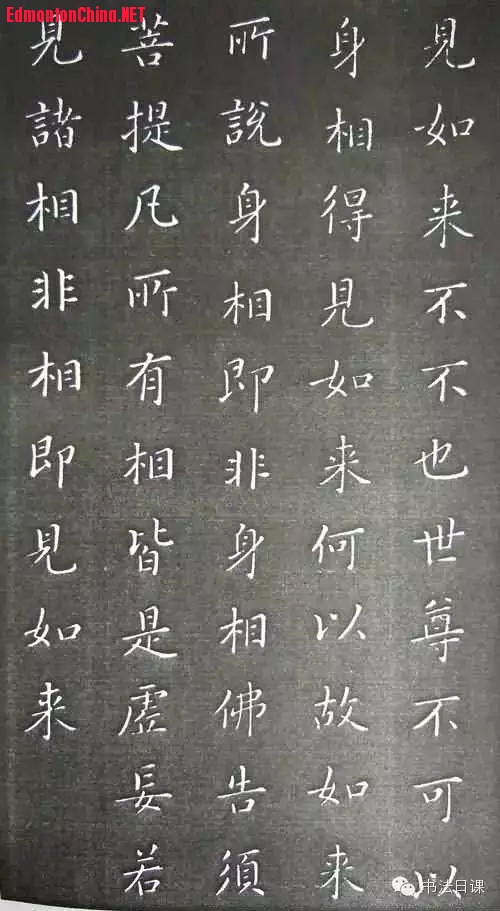 EdmontonChina.NET
見如来不不也世尊不可以
身相得見如来何以故如来
所說身相即非身相佛告須
菩提凡所有相皆是虛妄若
見諸相非相即見如来
书法日课